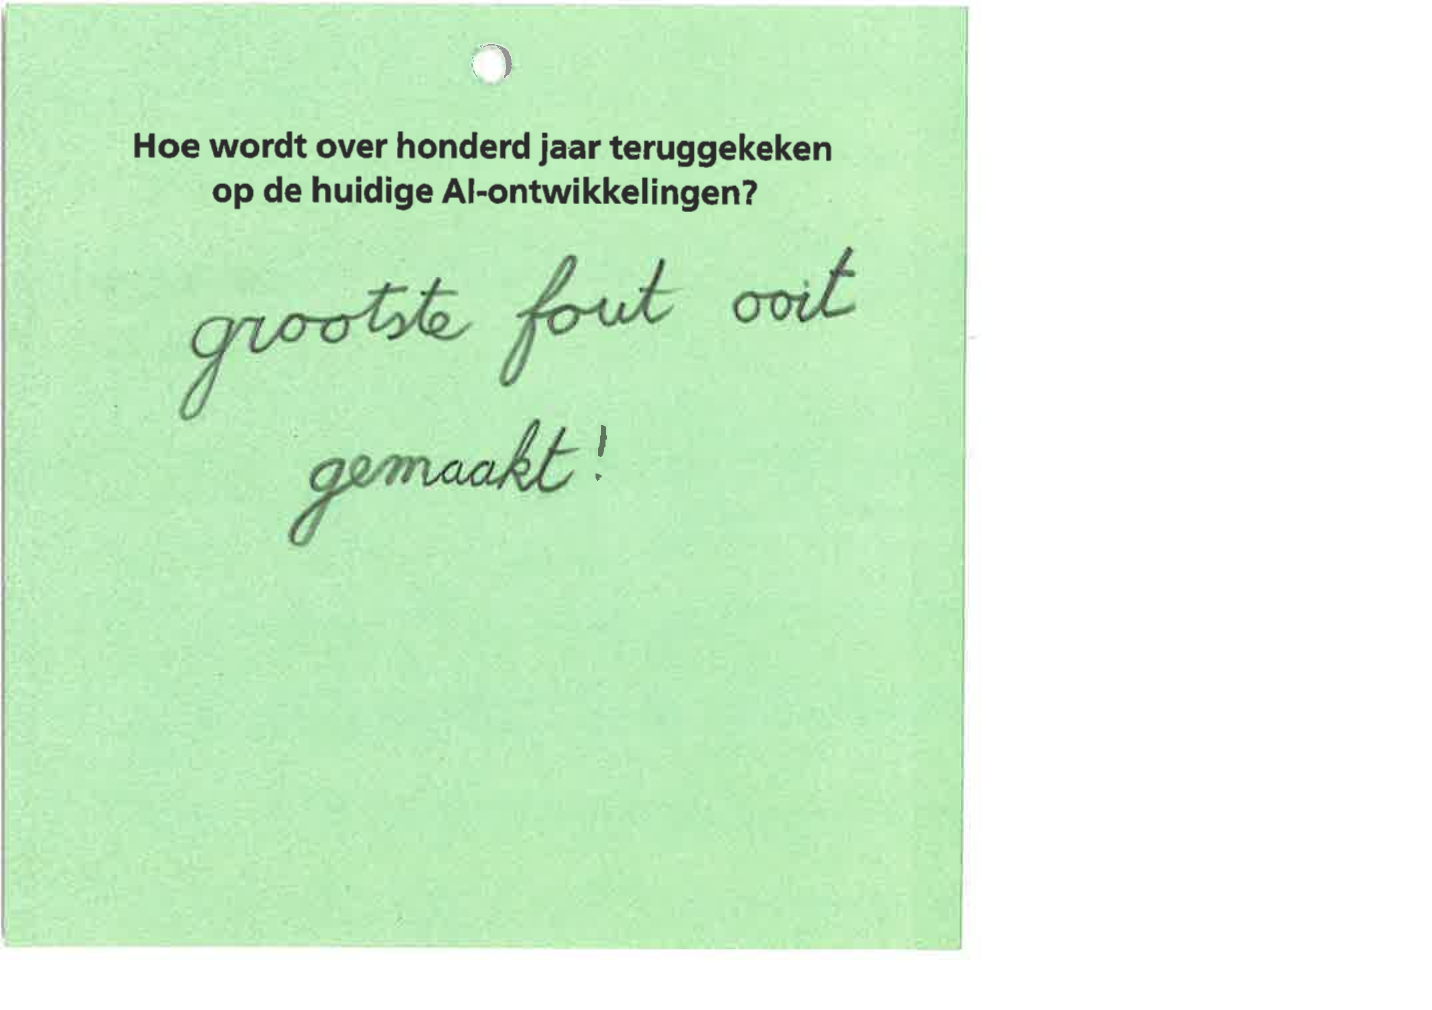 Hoe wordt over honderd jaar teruggekeken
op de huidige AI-ontwikkelingen?
grootste fout ooit
gemaakt!